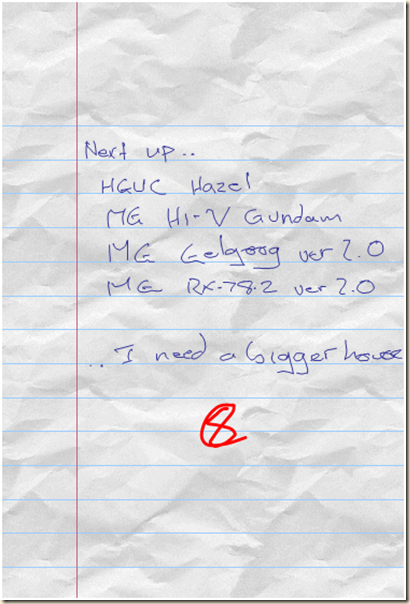 Next up..
HGUC Hazel
MG Hi-V Gundam
MG Gelgoog ver 2.0
MG RX-78.2 ver 2.0
.. I need a bigger house
8